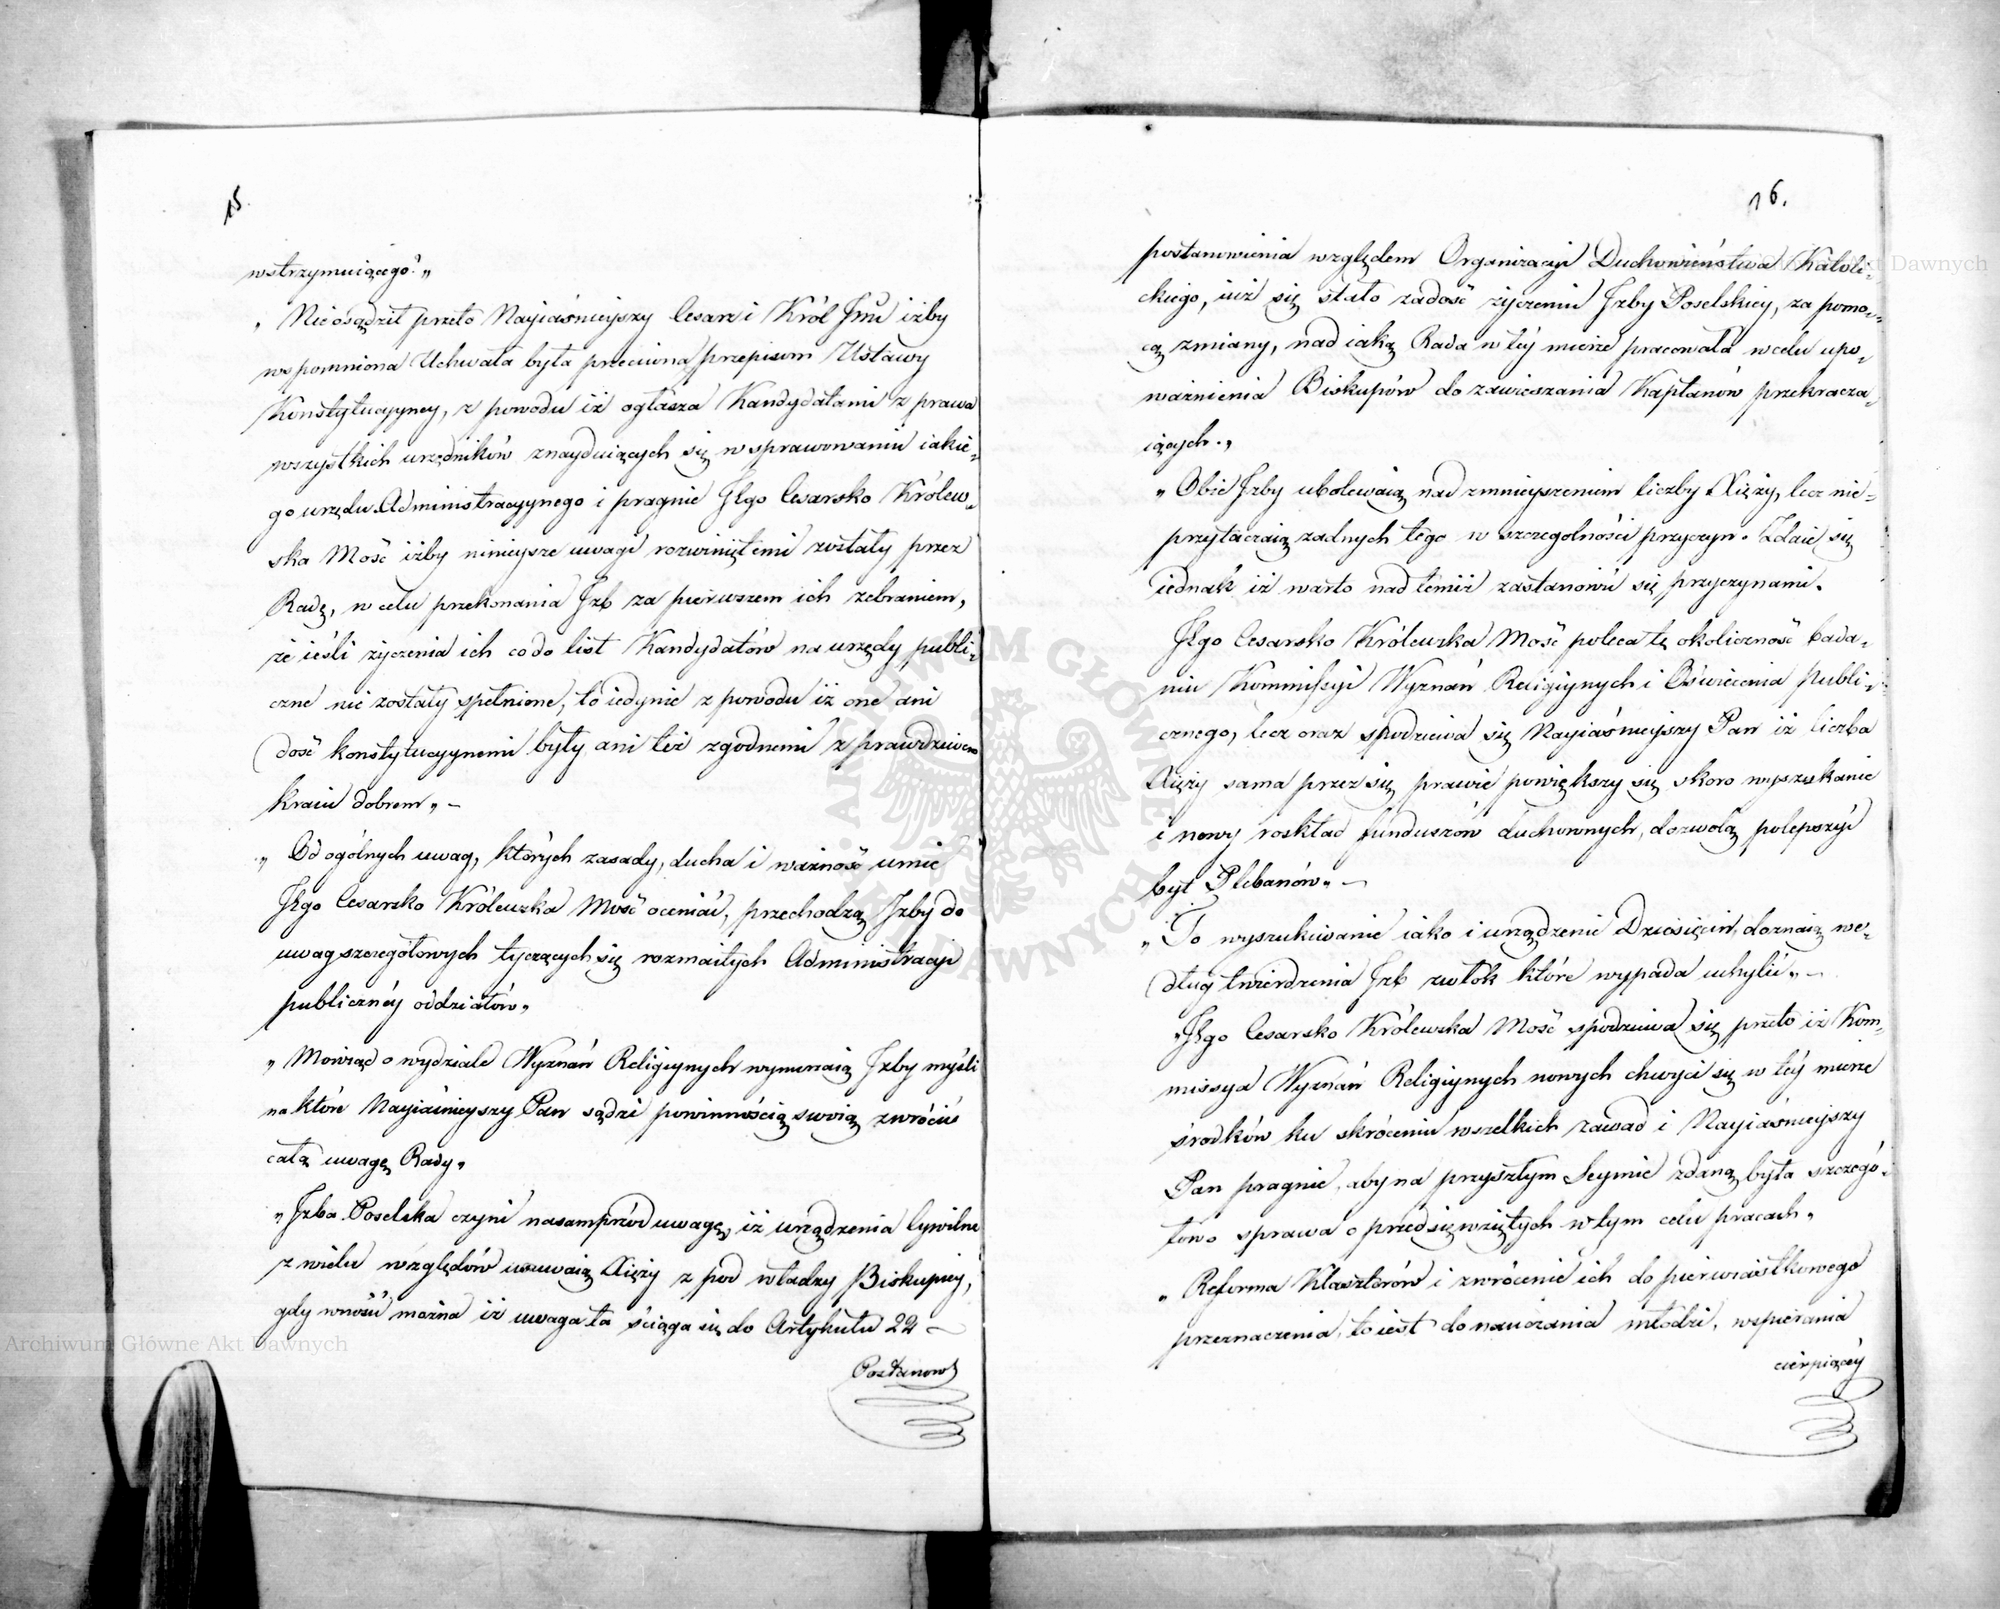 15.
wstrzymuiącego?„
„ Nie osądził przeto Nayiaśnieyszy Cesarz i Król Jmć iżby
wspomniona Uchwała była przeciwną przepisom Ustawy
Konstytucyyney, z powodu iż ogłasza Kandydatami z prawa
wszystkich urzędników znayduiących się w sprawowaniu iakie„
go urzędu Administracyynego i pragnie JEgo Cesarsko Królew„
ska Mość iżby ninieysze uwagi rozwiniętemi zostały przez
Radę, w celu przekonania Jzb za pierwszem ich zebraniem,
że ieśli życzenia ich co do list Kandydatów na urzędy publi„
czne nie zostały spełnione, to iedynie z powodu iż one ani
dość konstytucyynemi były ani też zgodnemi z prawdziwem
kraiu dobrem„ –
„ Od ogólnych uwag, których zasady, ducha i ważność umie
JEgo Cesarsko Królewska Mość oceniać, przechodzą Jzby do
uwag szczegółowych tyczących się rozmaitych Administracyi
publicznéy oddziałów„
„ Mówiąc o wydziale Wyznań Religiynych wynurzaią Jzby myśli
na które Nayiaśnieyszy Pan sądzi powinnością swoią zwrócić
całą uwagę Rady„
„ Jzba Poselska czyni nasamprzód uwagę, iż urządzenia Cywilne
z wielu względów usuwaią Xięży z pod władzy Biskupiey,
gdy wnosić można iż uwaga ta ściąga się do Artykułu 22 –
Postanow
16.
postanowienia względem Organizacyi Duchowieństwa Katoli„
ckiego, iuż się stało zadość życzeniu Jzby Poselskiey, za pomo„
cą zmiany, nad iaką Rada w téy mierze pracowała w celu upo„
ważnienia Biskupów do zawieszania Kapłanów przekracza„
iących.„
„ Obie Jzby ubolewaią nad zmnieyszeniem liczby Xięży, lecz nie„
przytaczaią żadnych tego w szczególności przyczyn. Zdaie się
iednak iż warto nad temiż zastanowić się przyczynami.
JEgo Cesarsko Królewska Mość poleca tę okoliczność bada„
niu Kommissyi Wyznań Religiynych i Oświecenia Publi„
cznego, lecz oraz spodziewa się Nayiaśnieyszy Pan iż liczba
Xięży sama przez się prawie powiększy się skoro wyszukanie
i nowy roskład funduszów duchownych, dozwolą polepszyć
byt Plebanów„ –
„ To wyszukiwanie iako i urządzenie Dziesięcin, doznaią we„
dług twierdzenia Jzb zwłok które wypada uchylić„ –
„JEgo Cesarsko Królewska Mość spodziewa się przeto iż Kom„
missya Wyznań Religiynych nowych chwyci się w téy mierze
środków ku skróceniu wszelkich zawad i Nayiaśnieyszy
Pan pragnie, aby na przyszłym Seymie zdaną była szczegó„
łowo sprawa o przedsięwziętych w tym celu pracach„
„ Reforma Klasztorów i zwrócenie ich do pierwiastkowego
przeznaczenia, to iest do nauczania młodzi, wspierania
cierpiącéy
Archiwum Główne Akt Dawnych